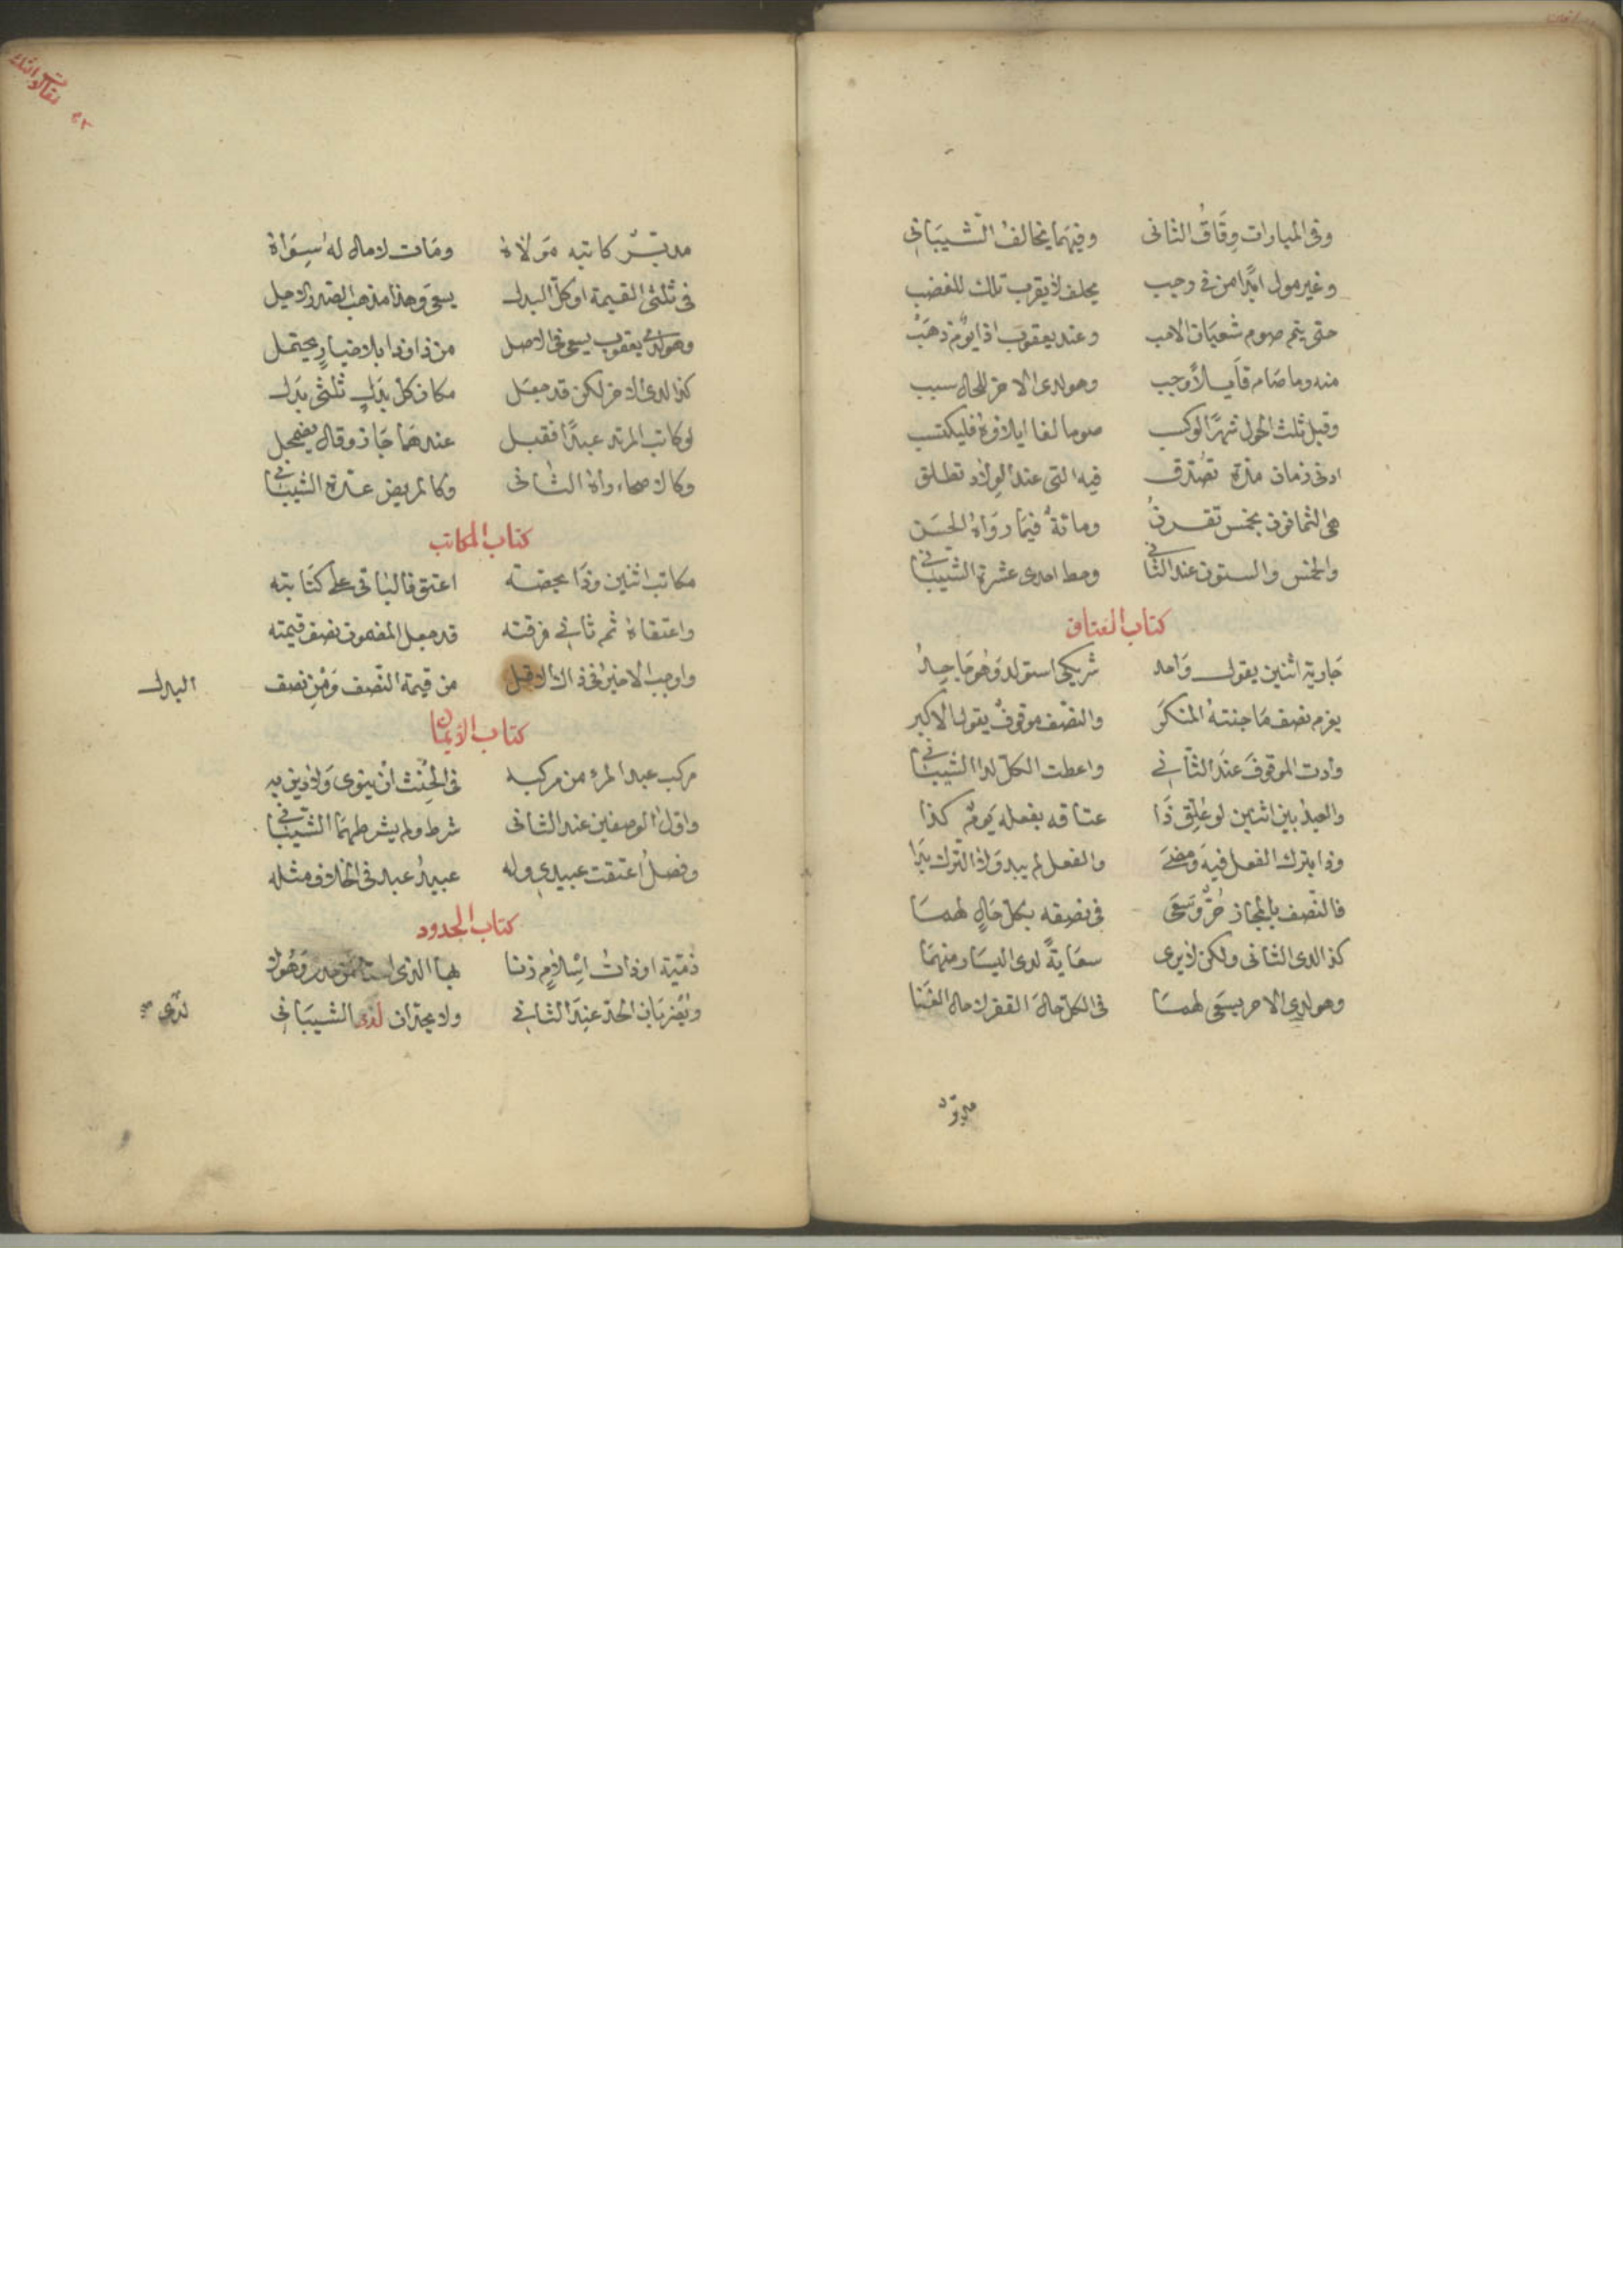 وفي المبارات وفاق الثانى وفيهما يخالف الشيبانى
وغير مول ابدا من في رجب يحلف لا يقرب تلك للغضب
حتى يتم صوم شعبان الاصب وعند يعقوب اذا يوم ذهب
منه وما صام وهو لدى الاخر للحال سبب
وقبل ثلث الحول شهرا لو كسب صوما لغا ايلاؤه فليكتسب
ادنى زمان مدة تصدق فيه التي عند الولاد تطلق
هي الثمانون بخمس تقرن ومائة فيما رواه الحسن
والخمس والستون عند الثانى وحط احدى عشرة الشيبانى
كتاب العتاق
جارية اثنين يقول واحد شريكي استولد وهو جاحد
يغرم نصف ما جنته المنكر والنصف موقوف يقول الاكبر
وادت الموقوف عند الثاني واعطت الكل لذا الشيبانى
والعبد بين اثنين لو علق ذا عتاقه بفعله يوم كذا
وذا بترك الفعل فيه ومضى والفعل لم يبد ولا الترك بدا
فالنصف بالمجاز حر وسعى في نصفه بكل حال لهما
كذا لدى الثانى ولكن لا يرى سعاية لدى اليسار منهما
وهو لدى الاخر يسعى لهما في الكل حال الفقر لا حال الغنا
مدبر
مدبر كاتبه مولاه ومات لا مال له سواه
في ثلثى القيمة او كل البدل يسعى وهذا مذهب الصدر الاجل
وهو لدى يعقوب يسعى في الاصل من ذا وذا بلا خيار يحتمل
كذا لدى الاخر لكن قد جعل مكان كل بدل ثلثى بدل
لو كاتب المرتد عبدا فقبل عندهما جاز وقال يضمحل
وكالاصحاء راه الثانى وكالمريض عده الشيبانى
كتاب المكاتب
مكاتب اثنين وذا بحصته اعتق فالباقى على كتابته
واعتقاه ثم ثاني فرقته قد جعل المضمون نصف قيمته
واوجب الاخير في ذاك الاقل من قيمة النصف ومن نصف البدل
كتاب الايمان
مركب عبد المرء من مركبه في الحنث ان ينوى ولا دين به
واول الوصفين عند الثانى شرط ولم يشرطهما الشيبانى
وفصل اعتقت عبيدي وله عبيد عبد في الخلاف مثله
كتاب الحدود
ذمية او ذات اسلام زنا بها الذى
ويضربان الحد عند الثاني ولا يحدان لدى الشيبانى
لدى صح